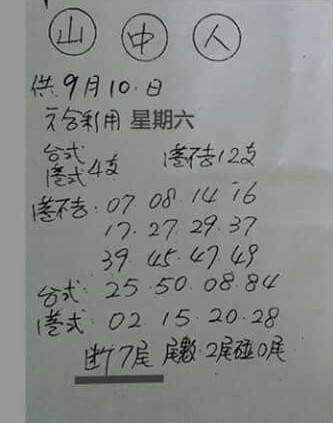 山 中 人
供 9月10日
六合利用 星期六
台式
港式 4支 港不出12支
港不出: 07. 08. 14. 16
17. 27. 29. 37
39. 45. 47. 49
台式: 25. 50. 08. 84
港式: 02. 15. 20. 28
断7尾 尾數: 2尾碰0尾